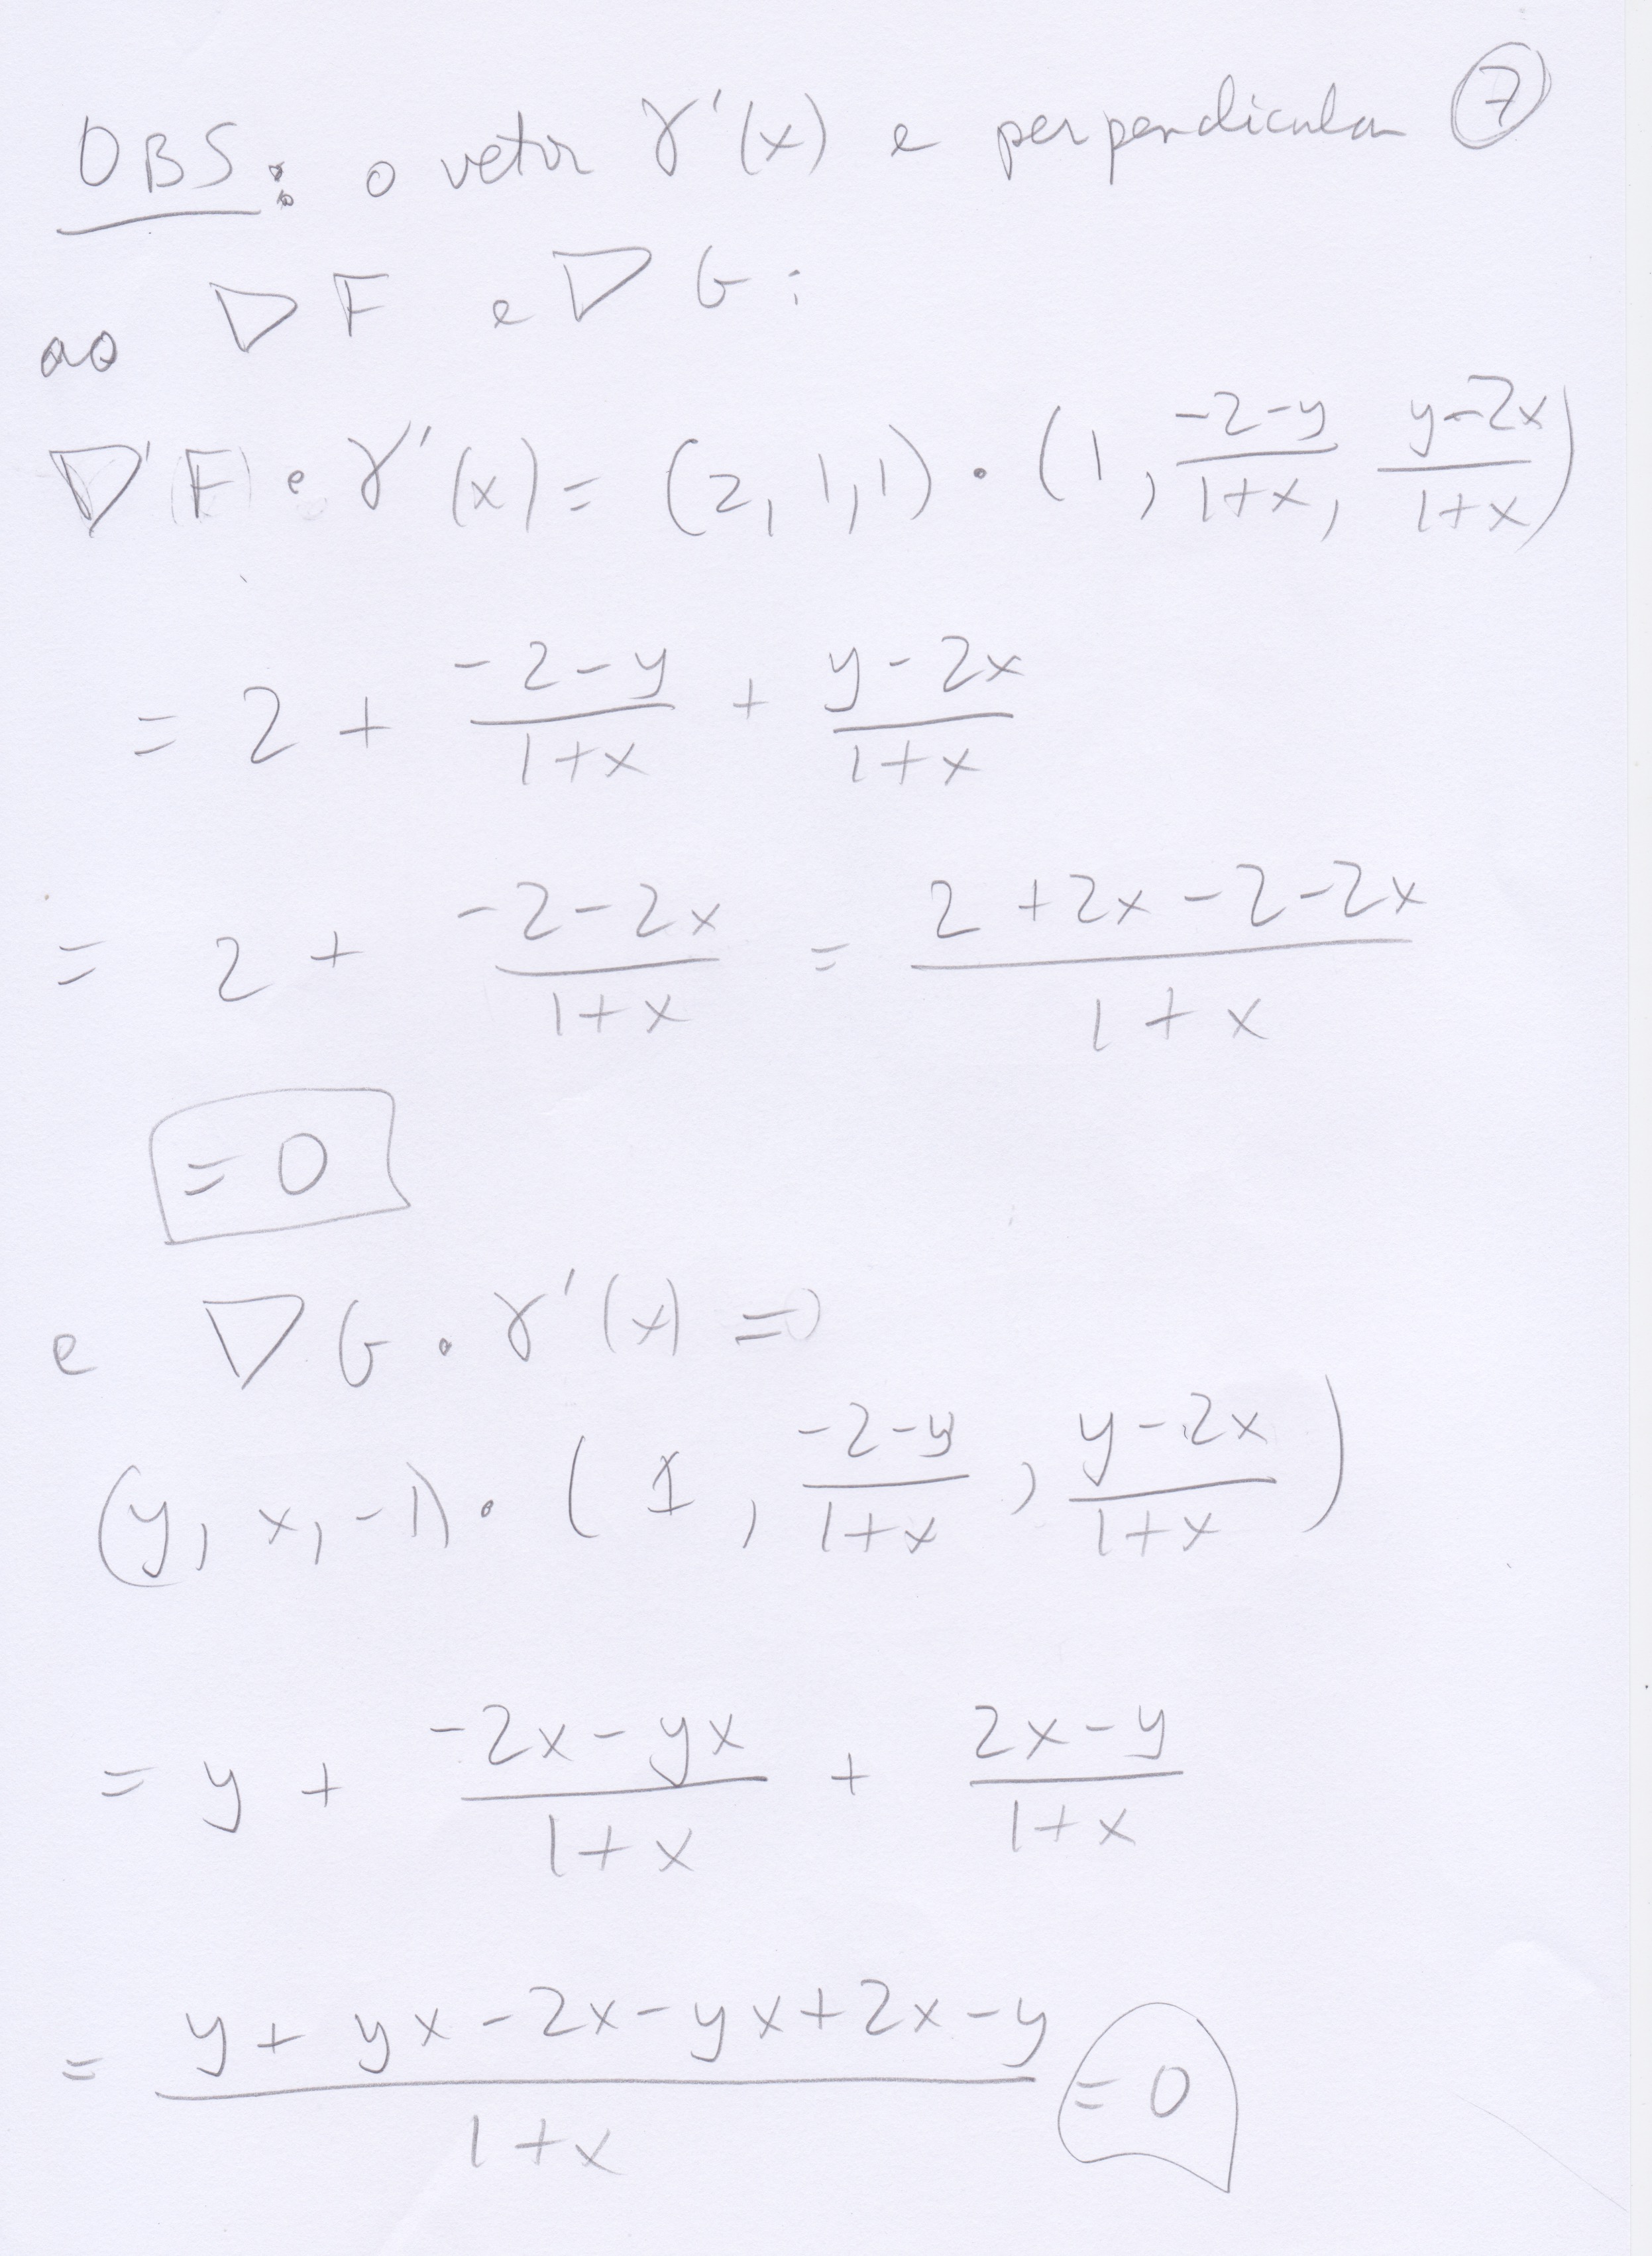 OBS: o vetor γ'(x) e perpendicular ⑦
ao ∇F e ∇G:
∇F • γ'(x) = (2, 1, 1) • (1, (-2-y)/(1+x), (y-2x)/(1+x))
= 2 + (-2-y)/(1+x) + (y-2x)/(1+x)
= 2 + (-2-2x)/(1+x) = (2+2x-2-2x)/(1+x)
= 0
e ∇G • γ'(x) =
(y, x, -1) • (1, (-2-y)/(1+x), (y-2x)/(1+x))
= y + (-2x-yx)/(1+x) + (2x-y)/(1+x)
= (y+yx-2x-yx+2x-y)/(1+x) = 0